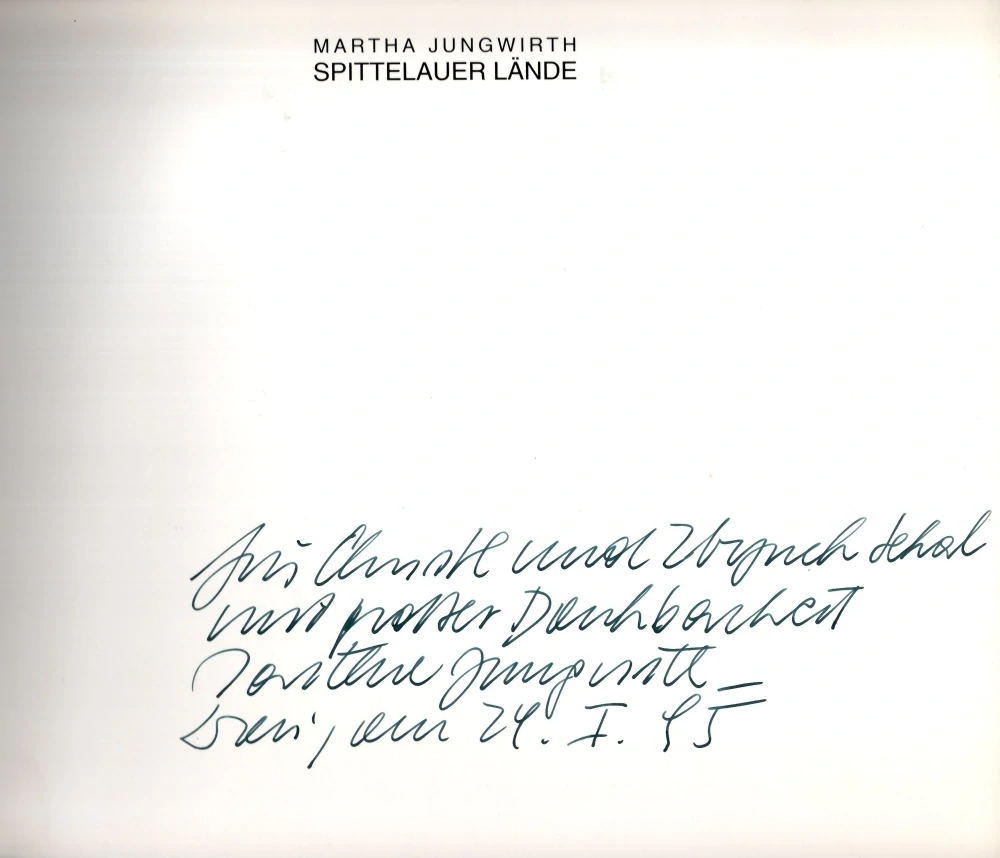 MARTHA JUNGWIRTH
SPITTELAUER LÄNDE
für Christl und Zbynek Sekal
mit großer Dankbarkeit
Martha Jungwirth
Wien, am 24. I. 95